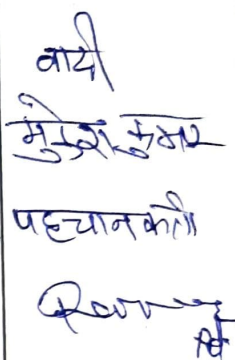 वादी
मुकेश कुमार
पहचानकर्ता